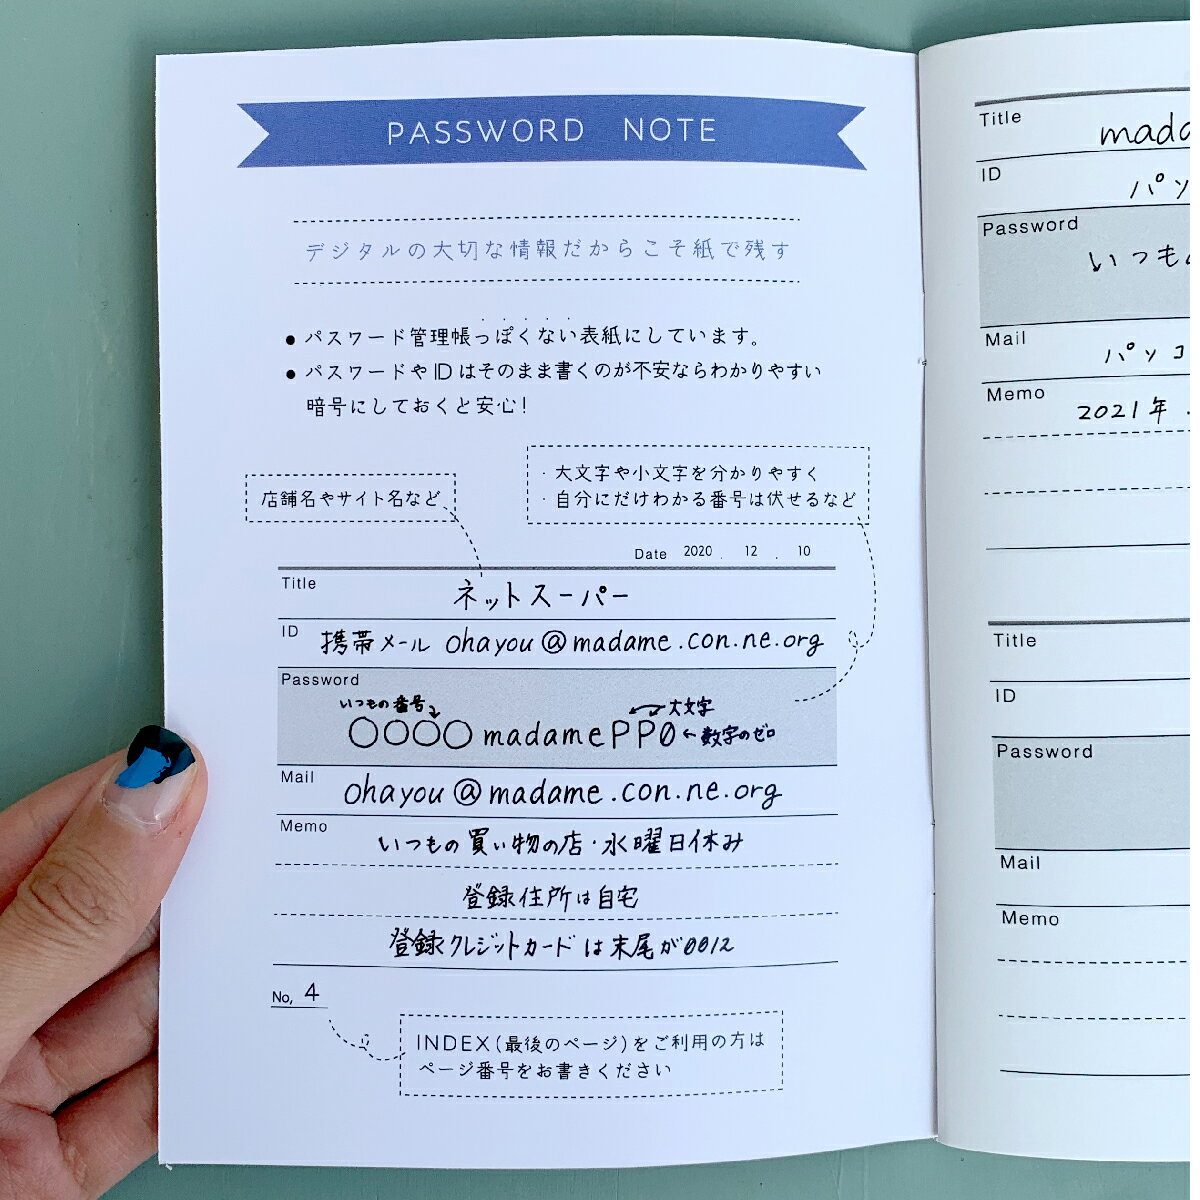 PASSWORD NOTE
デジタルの大切な情報だからこそ紙で残す
● パスワード管理帳っぽくない表紙にしています。
● パスワードやIDはそのまま書くのが不安ならわかりやすい
暗号にしておくと安心！
店舗名やサイト名など
・大文字や小文字を分かりやすく
・自分にだけわかる番号は伏せるなど
Date 2020 . 12 . 10
Title ネットスーパー
ID 携帯メール ohayou@madame.con.ne.org
Password
いつもの番号 大文字
〇〇〇〇madamePP0 ←数字のゼロ
Mail ohayou@madame.con.ne.org
Memo いつもの買い物の店・水曜日休み
登録住所は自宅
登録クレジットカードは末尾が0012
No, 4
INDEX(最後のページ)をご利用の方は
ページ番号をお書きください
Title
ID
Password
いつも
Mail パソコ
Memo 2021年
Title
ID
Password
Mail
Memo